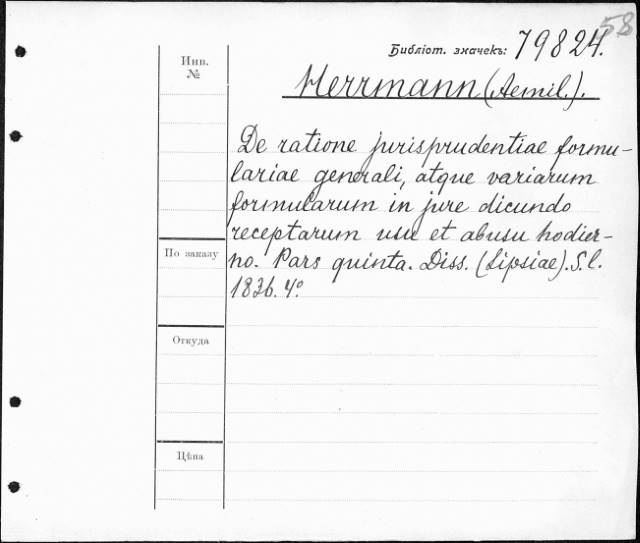 58
Библіот. значекъ: 79824.
Инв.
№
Herrmann (Aemil.).
De ratione jurisprudentiae formu-
lariae generali, atque variarum
formularum in jure dicundo
receptarum usu et abusu hodier-
no. Pars quinta. Diss. (Lipsiae). S. l.
1836. 4º
По заказу
Откуда
Цѣна